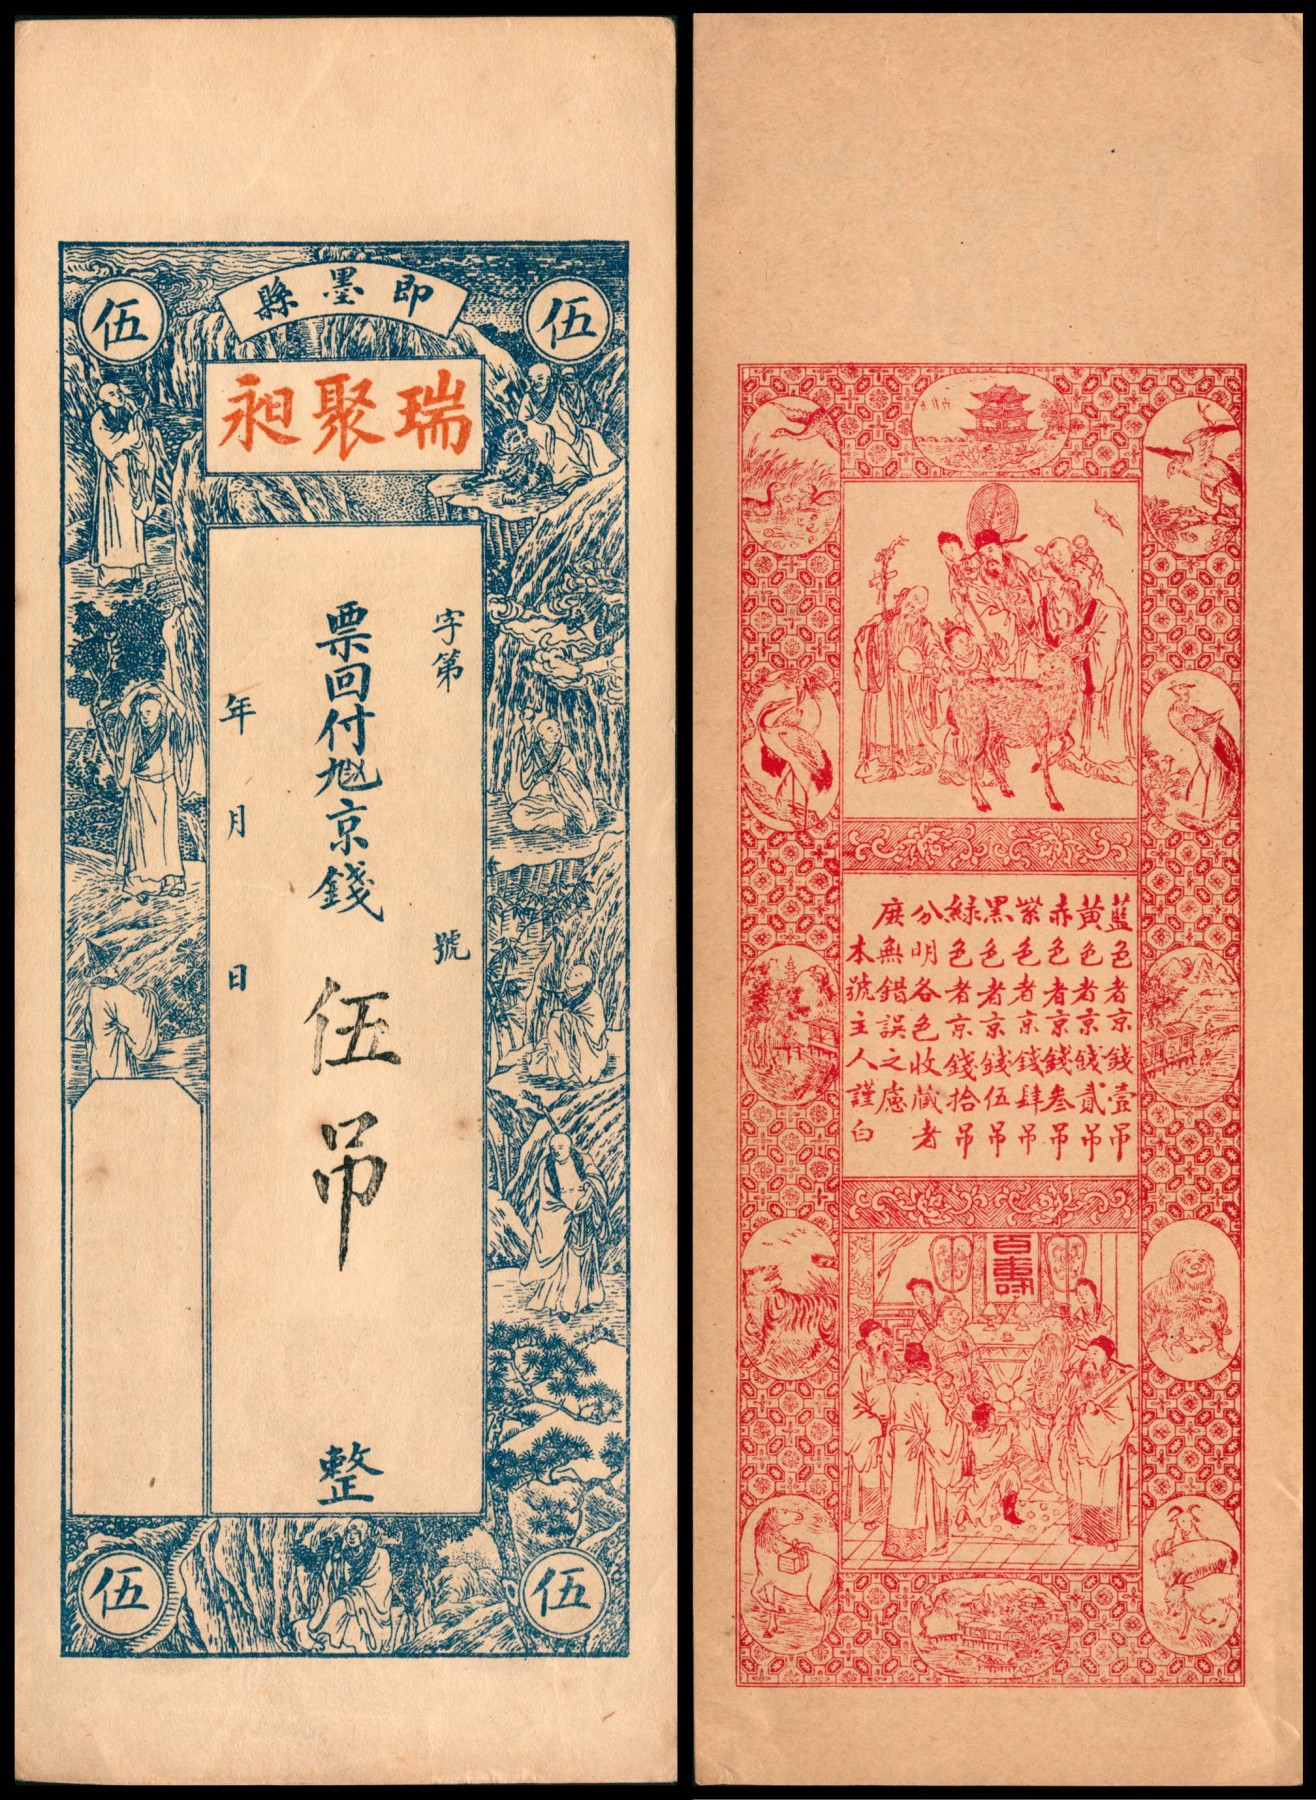 伍
伍
即墨縣
瑞聚昶
字第 號
票回付京錢 伍吊 整
年 月 日
伍
伍
藍色者京錢壹吊
黃色者京錢貳吊
赤色者京錢叁吊
紫色者京錢肆吊
黑色者京錢伍吊
綠色者京錢拾吊
分明各色收藏者
庶無錯誤之慮
本號主人謹白
百壽